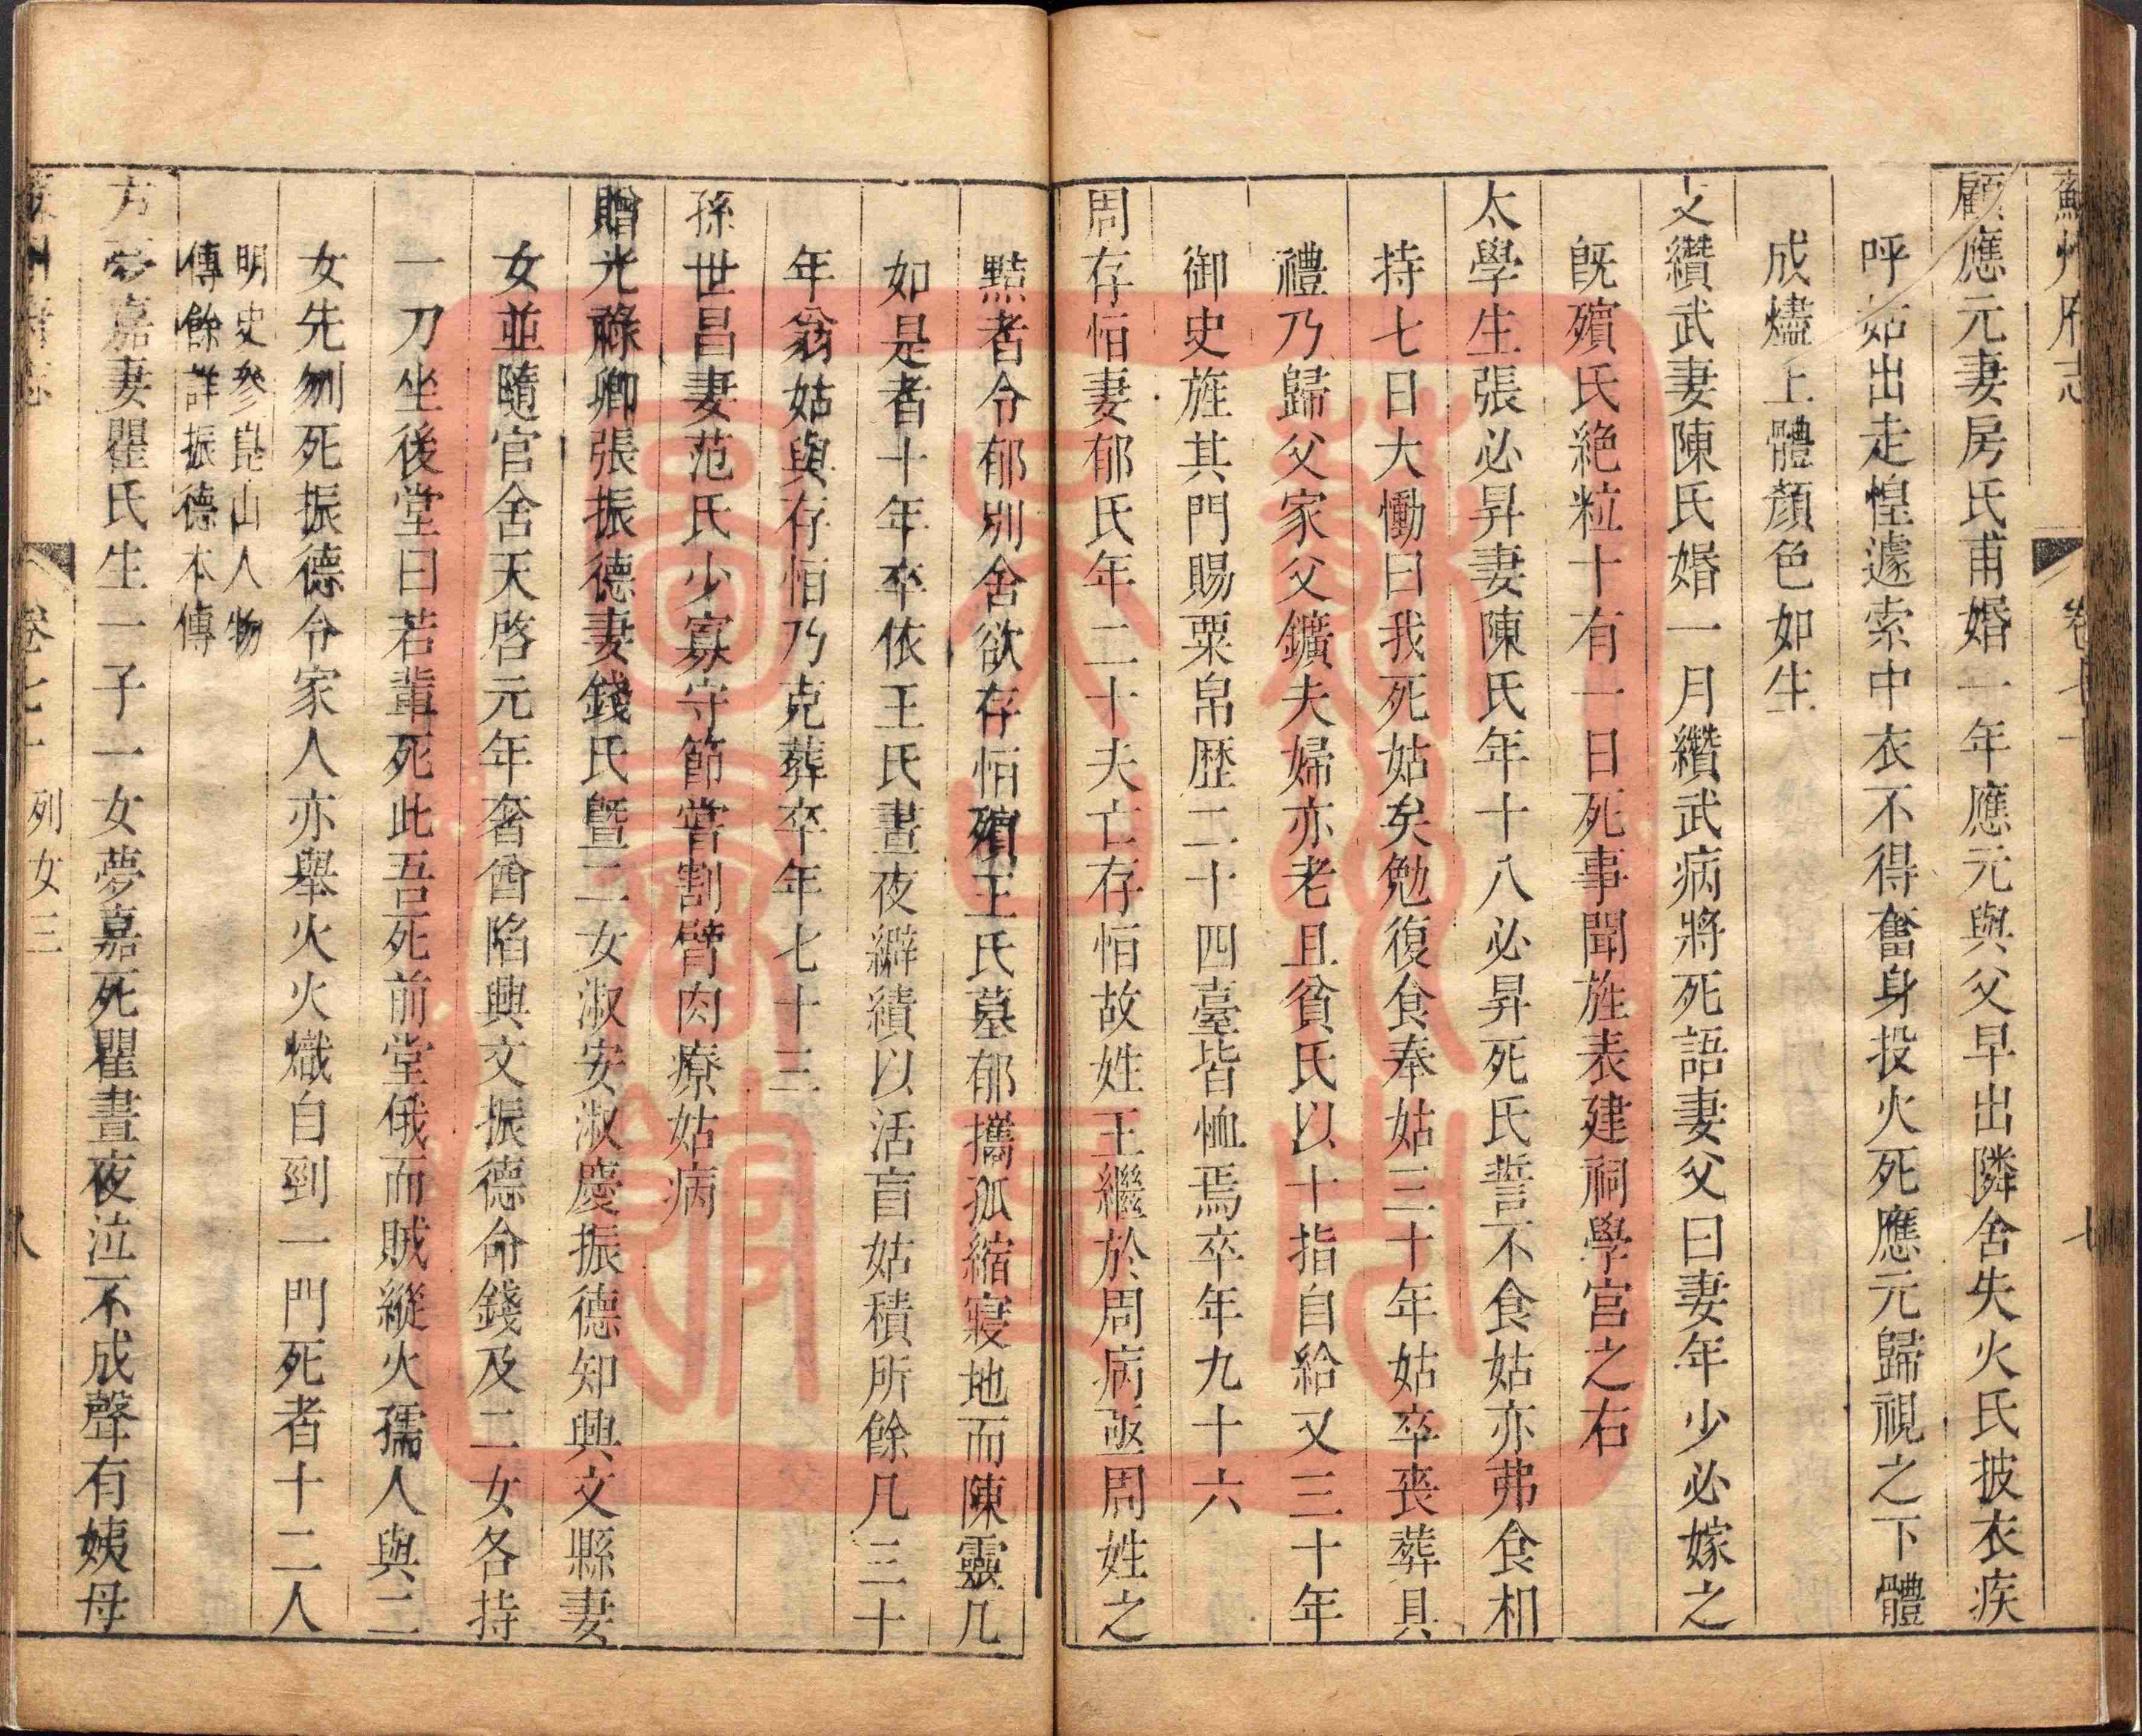 蘇州府志　卷七十　七
顧應元妻房氏甫婚一年應元與父早出隣舍失火氏披衣疾
呼姑出走惶遽索中衣不得奮身投火死應元歸視之下體
成燼上體顏色如生
文纘武妻陳氏婚一月纘武病將死語妻父曰妻年少必嫁之
旣殯氏絶粒十有一日死事聞旌表建祠學宮之右
太學生張必昇妻陳氏年十八必昇死氏誓不食姑亦弗食相
持七日大慟曰我死姑矣勉復食奉姑三十年姑卒喪葬具
禮乃歸父家父鑛夫婦亦老且貧氏以十指自給又三十年
御史旌其門賜粟帛歴二十四臺皆恤焉卒年九十六
周存恒妻郁氏年二十夫亡存恒故姓王繼於周病亟周姓之
黠者令郁別舍欲存恒殯王氏墓郁攜孤縮寢地而陳靈几
如是者十年卒依王氏晝夜澼績以活盲姑積所餘凡三十
年翁姑與存恒乃克葬卒年七十三
孫世昌妻范氏少寡守節嘗割臂肉療姑病
贈光祿卿張振德妻錢氏曁二女淑安淑慶振德知興文縣妻
女並隨官舍天啓元年奢酋陷興文振德命錢及二女各持
一刀坐後堂曰若輩死此吾死前堂俄而賊縱火孺人與二
女先刎死振德令家人亦舉火火熾自剄一門死者十二人
明史參崑山人物
傳餘詳振德本傳
方夢嘉妻瞿氏生一子一女夢嘉死瞿晝夜泣不成聲有姨母
卷七十　列女三　八